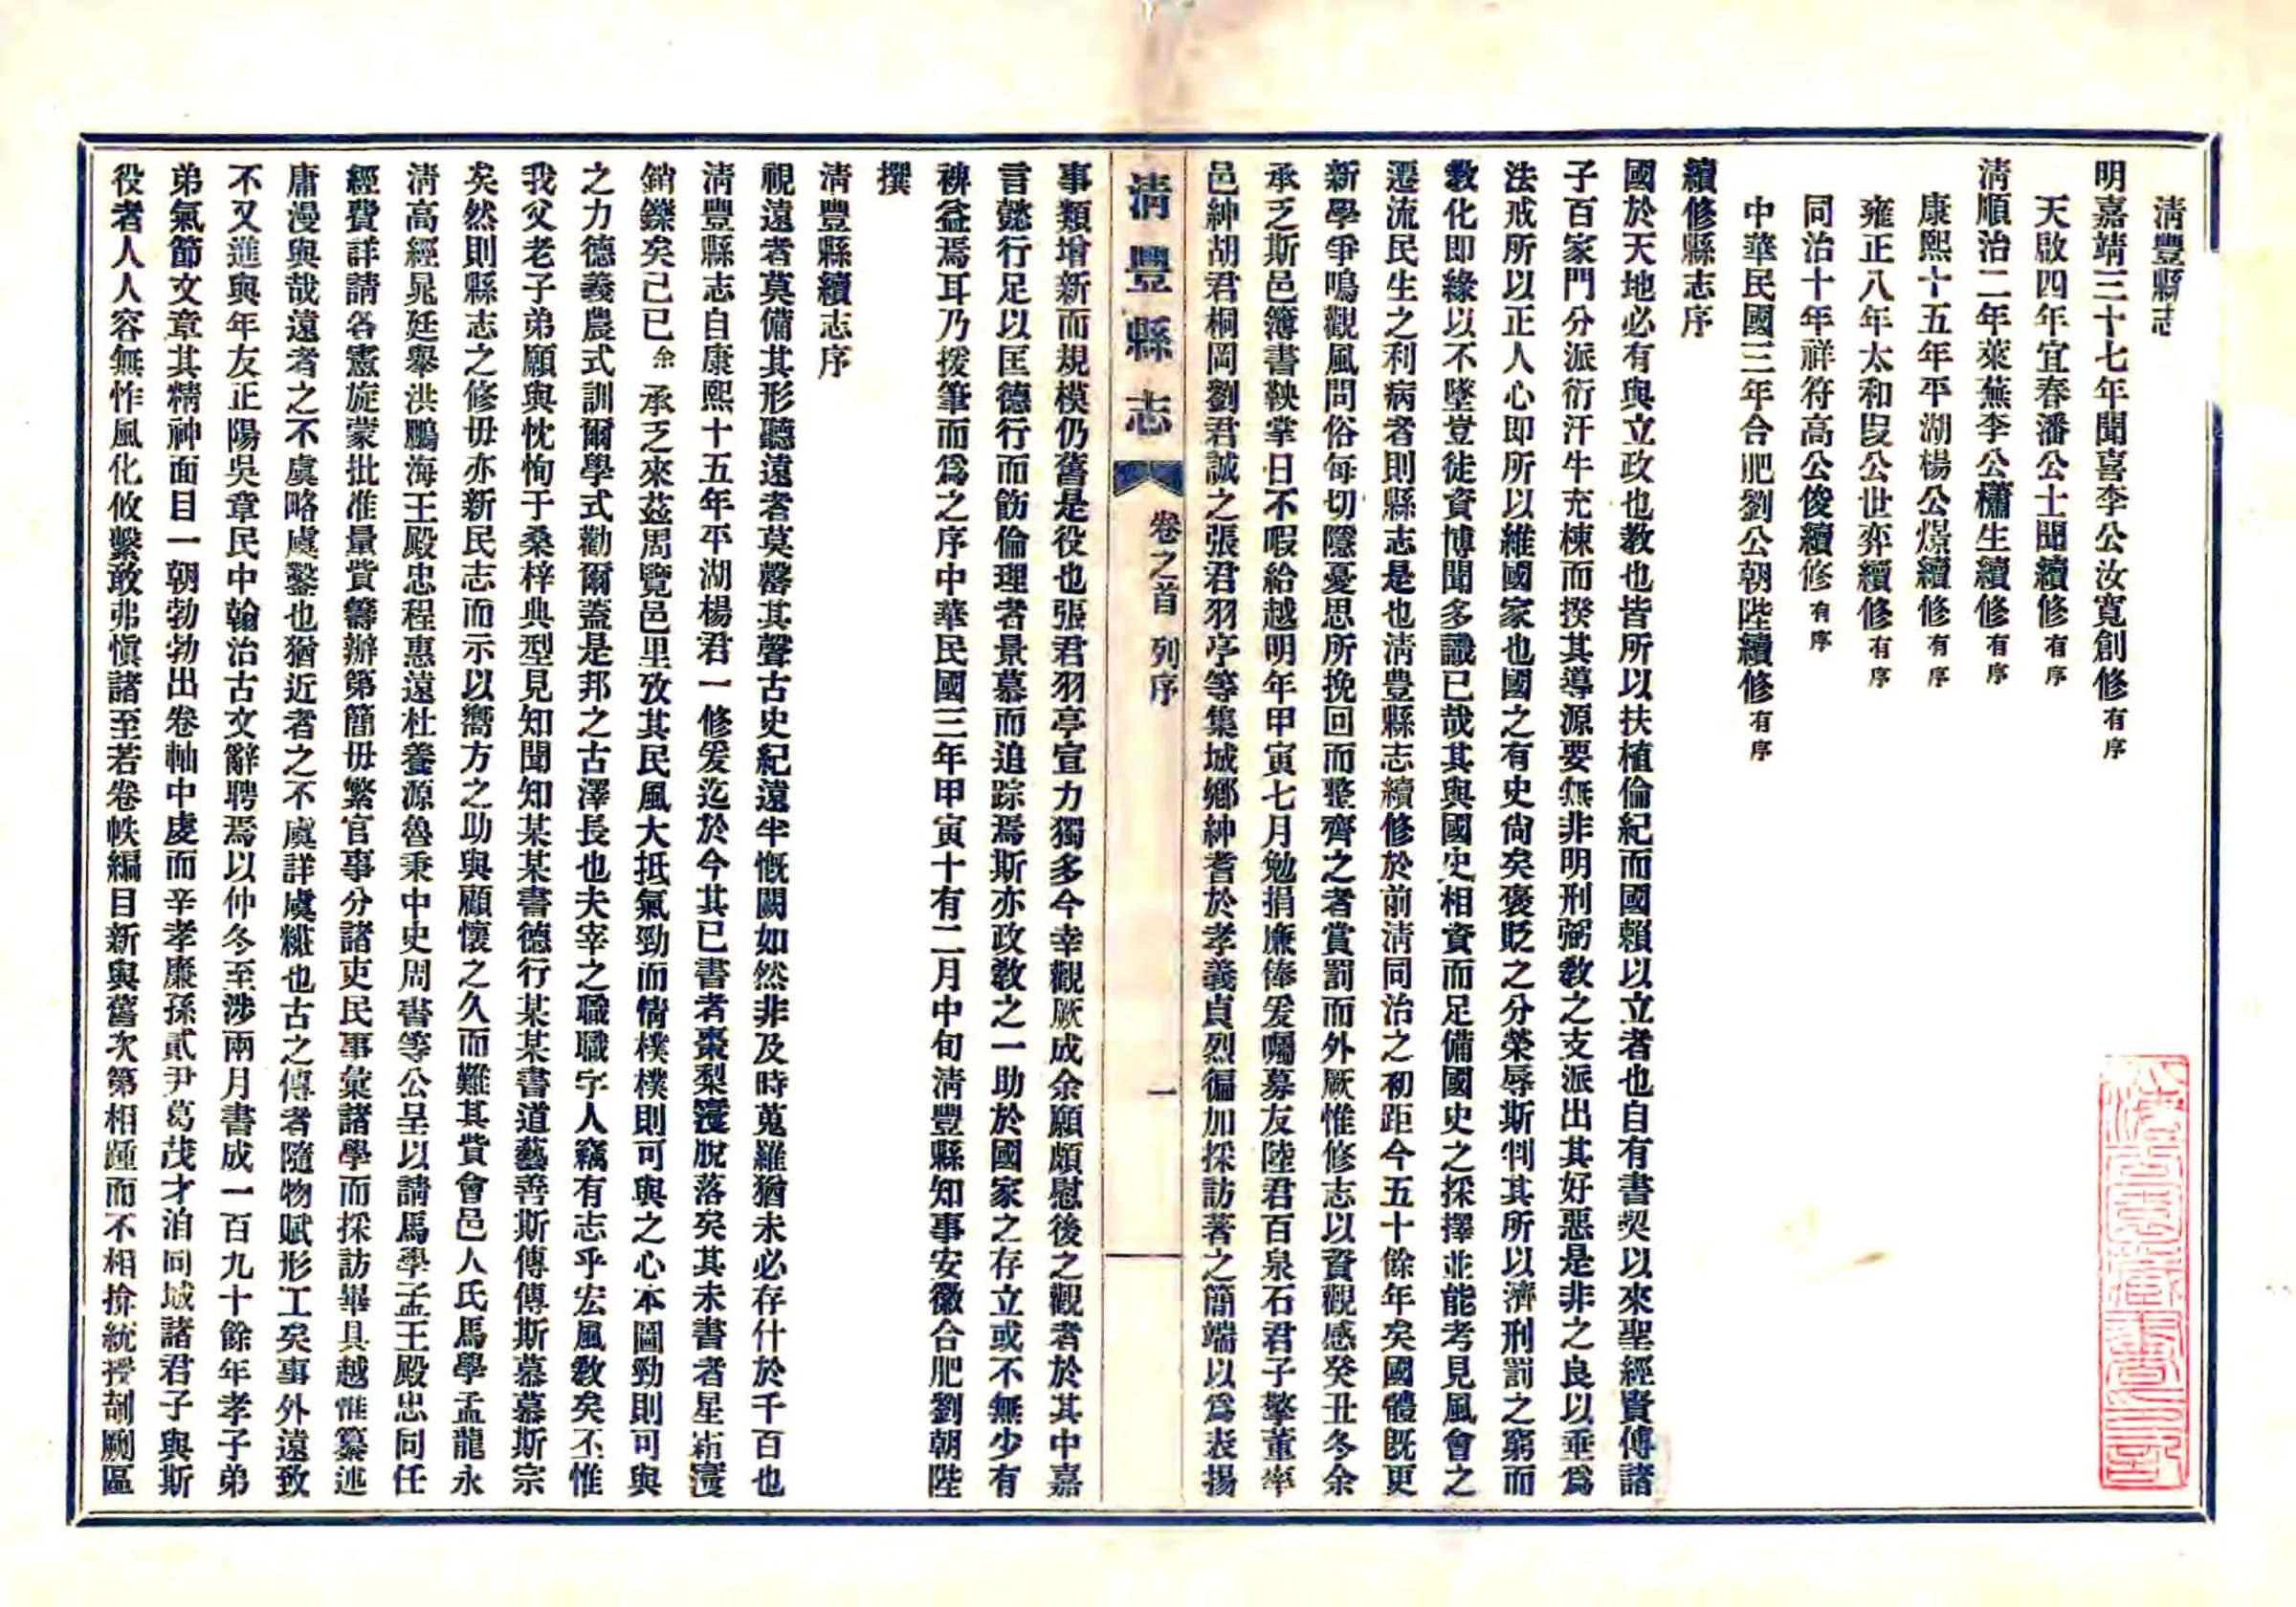 淸豐縣志
明嘉靖三十七年聞喜李公汝寬創修有序
天啟四年宜春潘公士聞續修有序
淸順治二年萊蕪李公櫹生續修有序
康熙十五年平湖楊公燝續修有序
雍正八年太和㫜公世弈續修有序
同治十年祥符高公俊續修有序
中華民國三年合肥劉公朝陛續修有序
續修縣志序
國於天地必有與立政也敎也皆所以扶植倫紀而國賴以立者也自有書契以來聖經賢傳諸
子百家門分派衍汗牛充棟而揆其導源要無非明刑弼敎之支派出其好惡是非之良以垂爲
法戒所以正人心即所以維國家也國之有史尙矣褒貶之分榮辱斯判其所以濟刑罰之窮而
敎化即緣以不墜豈徒資博聞多識已哉其與國史相資而足備國史之採擇並能考見風會之
遷流民生之利病者則縣志是也淸豊縣志續修於前淸同治之初距今五十餘年矣國體旣更
新學爭鳴觀風問俗每切隱憂思所挽回而整齊之者賞罰而外厥惟修志以資觀感癸丑冬余
承乏斯邑簿書鞅掌日不暇給越明年甲寅七月勉捐廉俸爰囑募友陸君百泉石君子擎董率
邑紳胡君桐岡劉君誠之張君羽亭等集城鄉紳耆於孝義貞烈徧加採訪著之簡端以爲表揚
淸豐縣志
卷之首 列序
一
事類增新而規模仍舊是役也張君羽亭宣力獨多今幸觀厥成余願頗慰後之觀者於其中嘉
言懿行足以匡德行而飭倫理者景慕而追踪焉斯亦政敎之一助於國家之存立或不無少有
裨益焉耳乃援筆而爲之序中華民國三年甲寅十有二月中旬淸豐縣知事安徽合肥劉朝陛
撰
淸豐縣續志序
視遠者莫備其形聽遠者莫罄其聲古史紀遠半慨闕如然非及時蒐羅猶未必存什於千百也
淸豐縣志自康熙十五年平湖楊君一修爰迄於今其已書者棗梨漫脫落矣其未書者星霜寖
銷鑠矣已巳余承乏來茲周覽邑里攷其民風大抵氣勁而情樸樸則可與之心本圖勁則可與
之力德義農式訓爾學式勸爾蓋是邦之古澤長也夫宰之職職字人竊有志乎宏風敎矣不惟
我父老子弟願與忱恂于桑梓典型見知聞知某某書德行某某書道藝善斯傳傳斯慕慕斯宗
矣然則縣志之修毋亦新民志而示以嚮方之助與顧懷之久而難其貲會邑人氏馬學孟龍永
淸高經晁廷舉洪鵬海王殿忠程惠遠杜養源魯秉中史周書等公呈以請馬學孟王殿忠同任
經費詳請各憲旋蒙批准量貲籌辦第簡毋繁官事分諸吏民事彙諸學而採訪畢具越惟纂述
庸漫與哉遠者之不虞略虞鑿也猶近者之不虞詳虞糅也古之傳者隨物賦形工矣事外遠致
不又進與年友正陽吳章民中翰治古文辭聘焉以仲冬至涉兩月書成一百九十餘年孝子弟
弟氣節文章其精神面目一朝勃勃出卷軸中處而辛孝廉孫貳尹葛茂才洎同城諸君子與斯
役者人人容無怍風化攸繫敢弗愼諸至若卷帙編目新與舊次第相踵而不相揜統授剞劂區